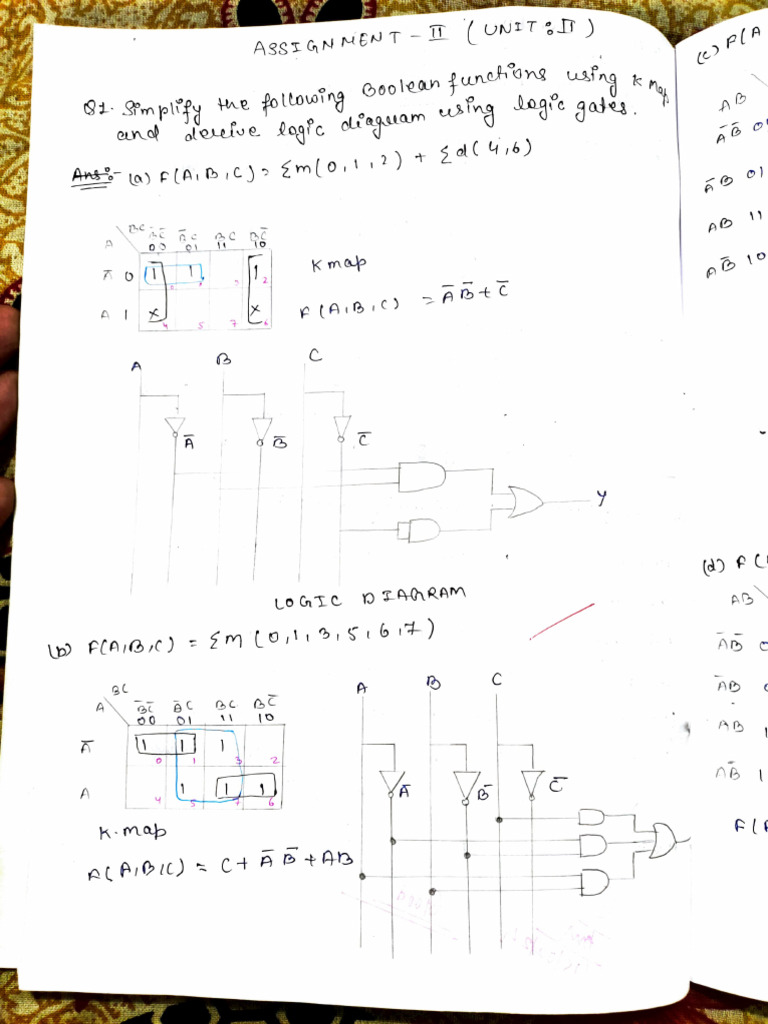 ASSIGNMENT - II ( UNIT : II )
Q1. Simplify the following Boolean functions using K Map
and dercive logic diagram using logic gates.
Ans:- (a) F(A,B,C) = Σm(0,1,2) + Σd(4,6)
BC B̅C̅ B̅C BC BC̅
A 00 01 11 10
A̅ 0 1 1 1
3 2
A 1 X X
4 5 7 6
K map
F(A,B,C) = A̅B̅ + C̅
A B C
A̅ B̅ C̅
Y
LOGIC DIAGRAM
(b) F(A,B,C) = Σm (0,1,3,5,6,7)
BC
A B̅C̅ B̅C BC BC̅
00 01 11 10
A̅ 1 1 1
0 1 3 2
A 1 1 1
4 5 7 6
K-map
A(A,B,C) = C + A̅B̅ + AB
A B C
A̅ B̅ C̅
(c) F(A
AB
A̅B̅ 0
A̅B 01
AB 11
AB̅ 10
(d) F(
AB
A̅B̅ 0
A̅B 0
AB 1
AB̅ 1
F(A